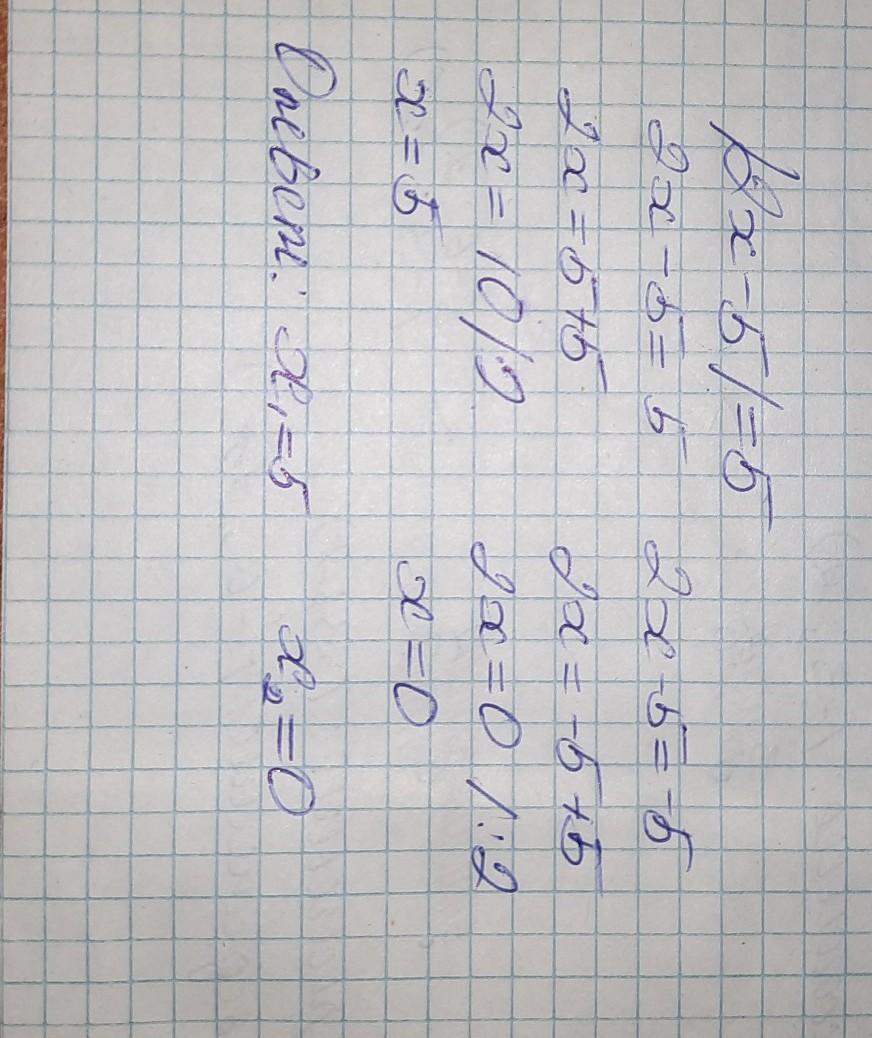 |2x-5|=5
2x-5=5 2x-5=-5
2x=5+5 2x=-5+5
2x=10/:2 2x=0/:2
x=5 x=0
Ответ: x₁=5 x₂=0